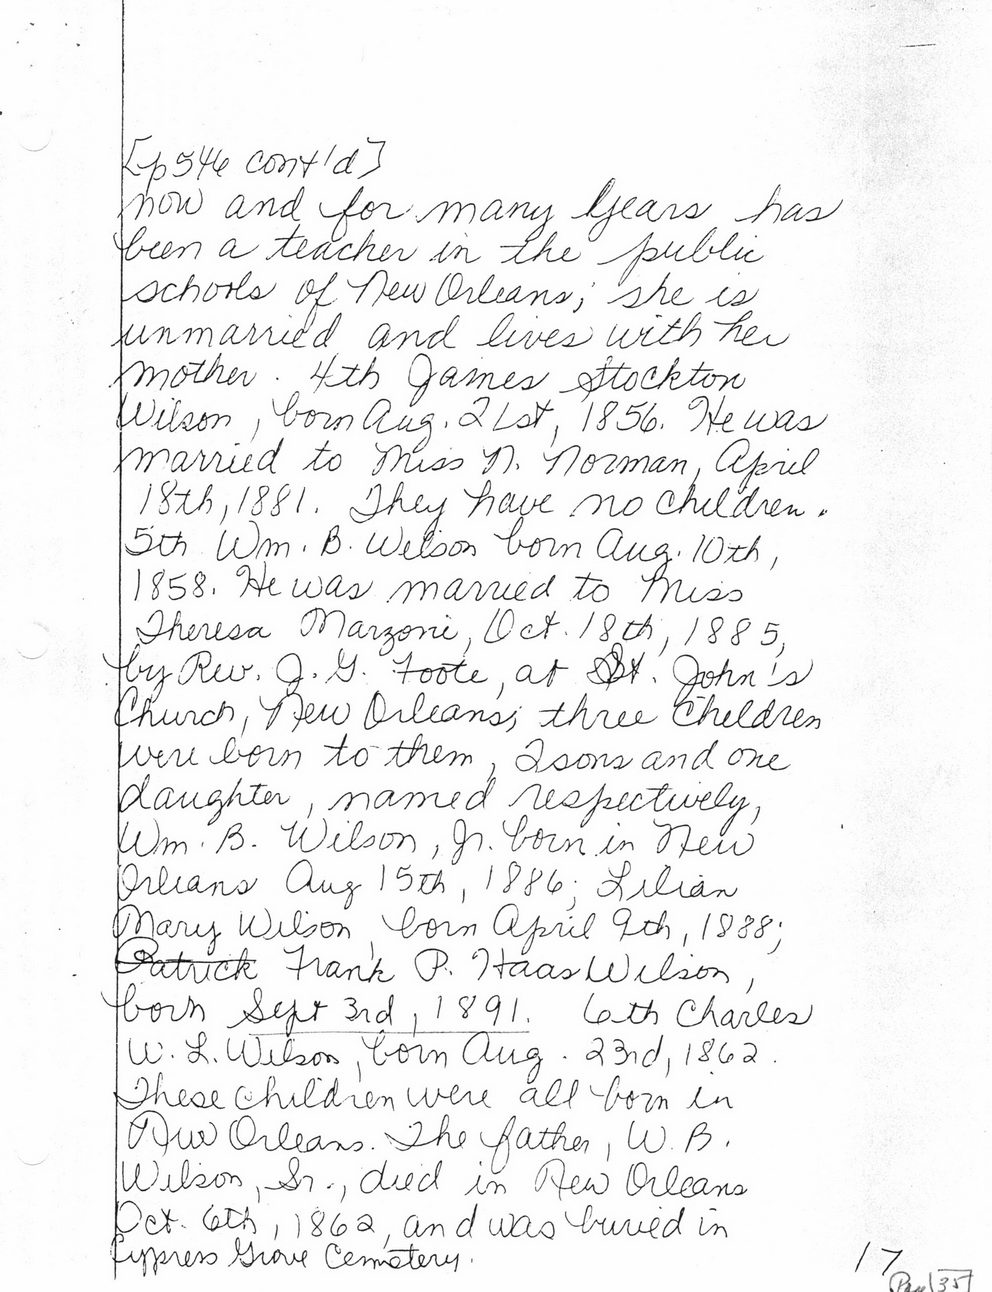 [p546 cont'd]
now and for many years has
been a teacher in the public
schools of New Orleans; she is
unmarried and lives with her
mother. 4th James Stockton
Wilson, born Aug. 21st, 1856. He was
married to Miss N. Norman, April
18th, 1881. They have no children.
5th Wm. B. Wilson born Aug. 10th,
1858. He was married to Miss
Theresa Marzoni, Oct. 18th, 1885,
by Rev. J. G. Foote, at St. John's
Church, New Orleans; three children
were born to them, 2 sons and one
daughter, named respectively,
Wm. B. Wilson, Jr. born in New
Orleans Aug 15th, 1886; Lilian
Mary Wilson, born April 9th, 1888;
Patrick Frank P. Haas Wilson,
born Sept 3rd, 1891. 6th Charles
W. L. Wilson, born Aug. 23rd, 1862.
These children were all born in
New Orleans. The father, W. B.
Wilson, Sr., died in New Orleans
Oct. 6th, 1862, and was buried in
Cypress Grove Cemetery.
17
Page 35